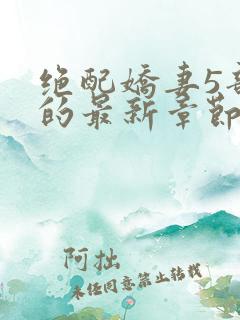 绝配娇妻5
的最新章节
阿拙
未经同意禁止转载